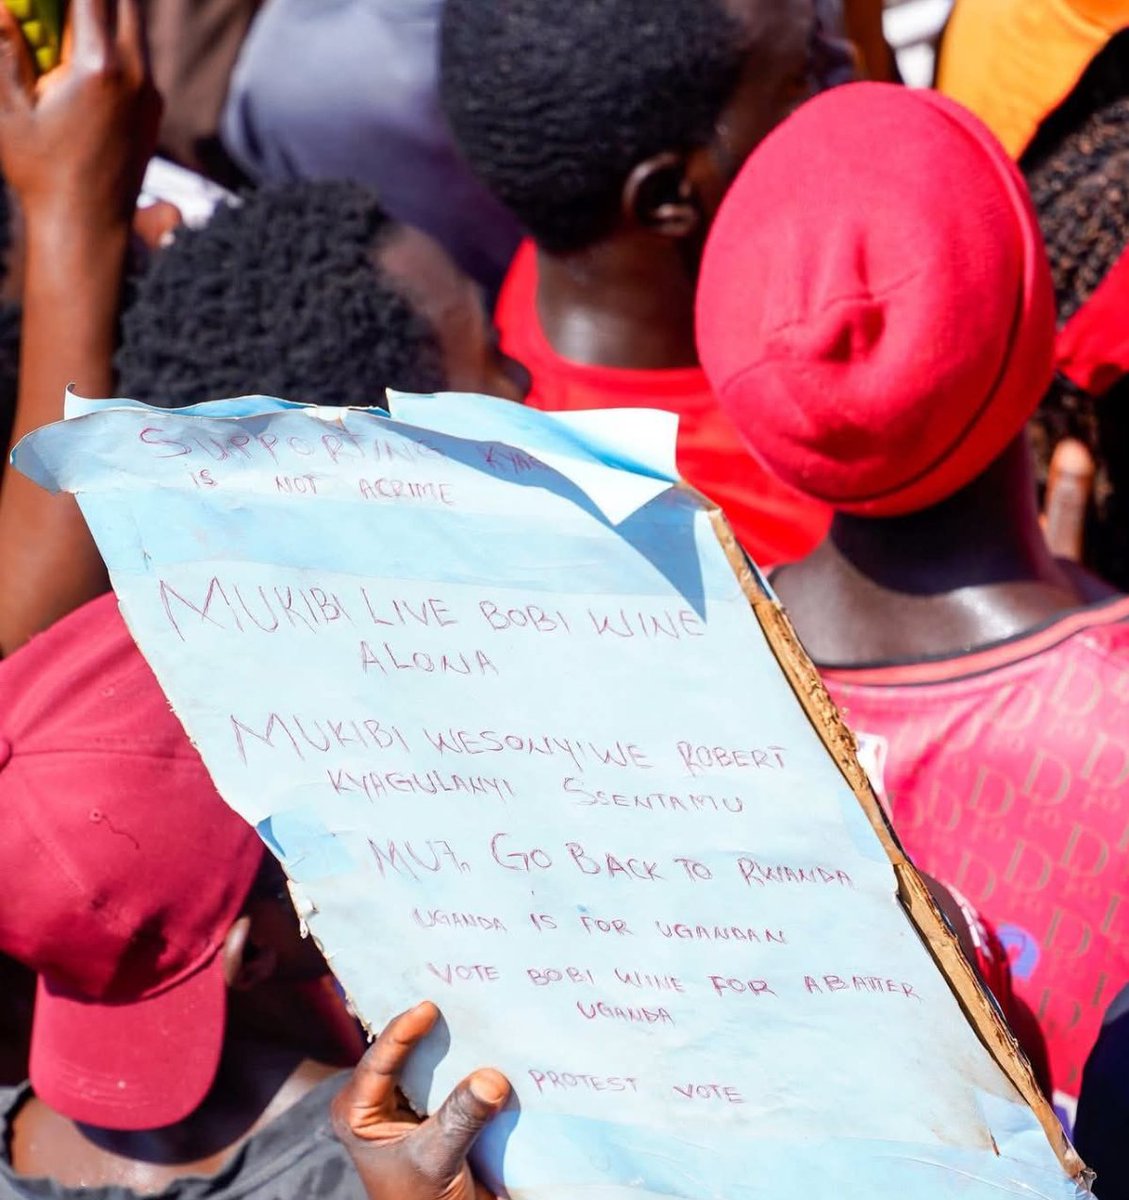 SUPPORTING
is NOT ACRIME
MUKIBI LIVE BOBI WINE
ALONA
MUKIBI WESONYIWE ROBERT
KYAGULANYI SSENTAMU
MU7. GO BACK TO RWANDA
UGANDA IS FOR UGANDAN
VOTE BOBI WINE FOR ABATTER
UGANDA
PROTEST VOTE